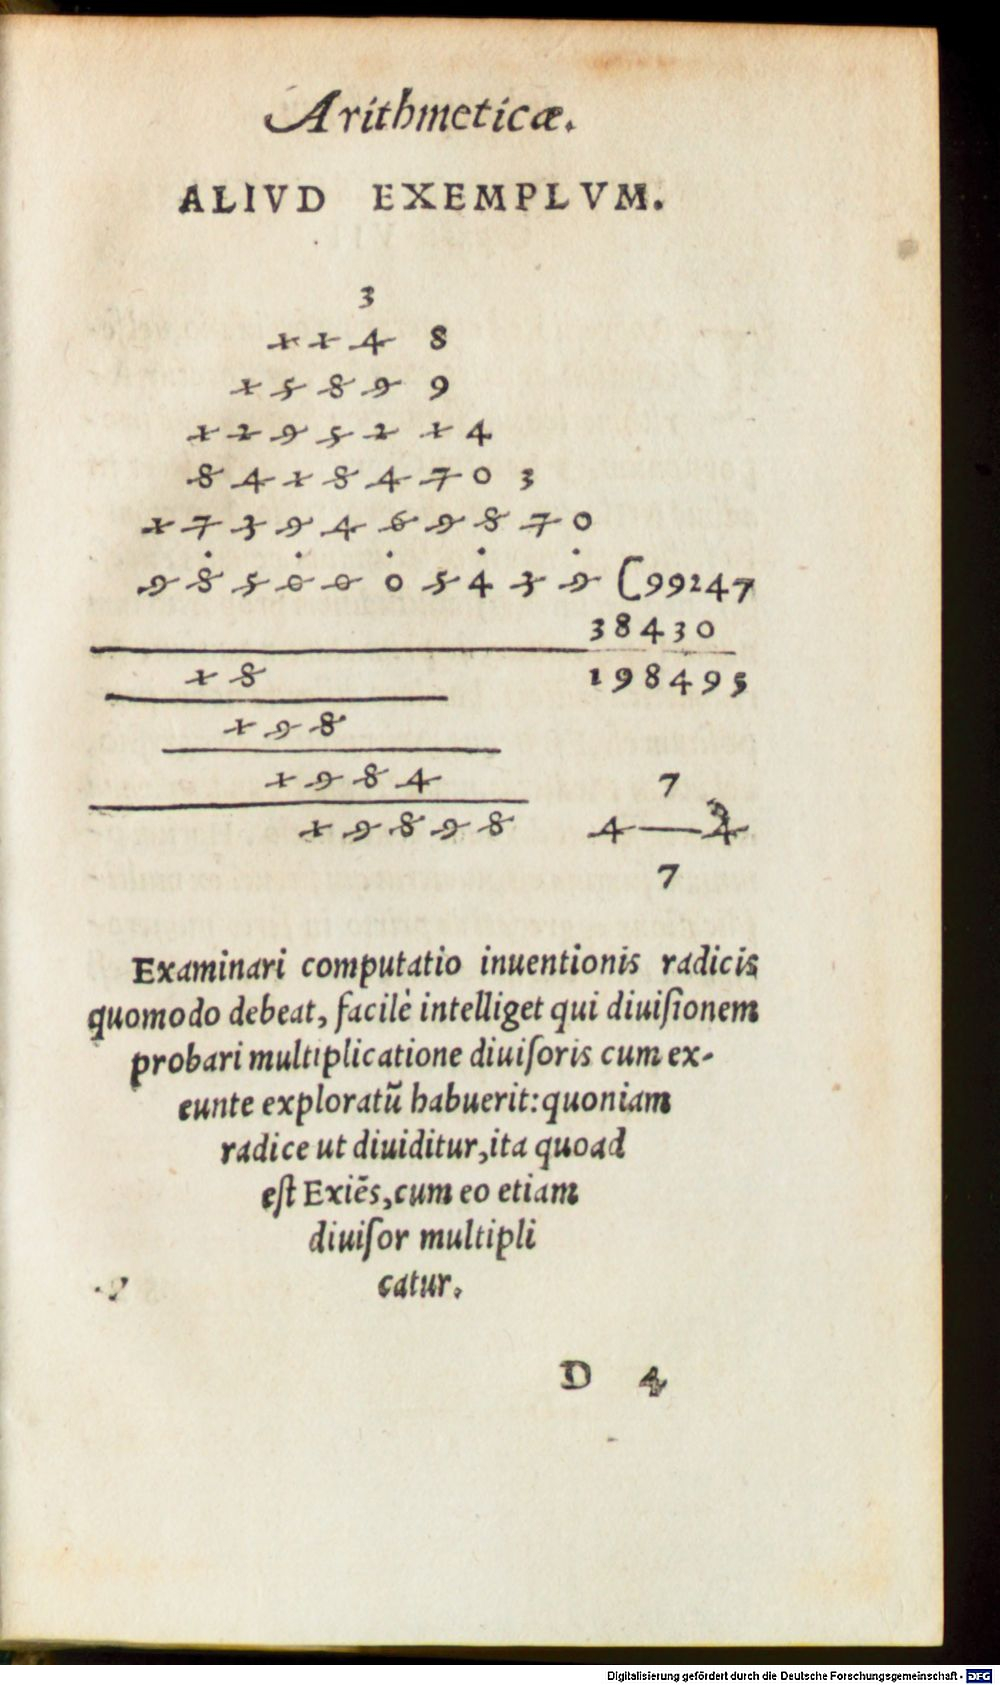 Arithmeticæ.
ALIVD EXEMPLVM.
3
1 1 4 8
1 5 8 9 9
1 2 9 5 2 1 4
8 4 1 8 4 7 0 3
1 7 3 9 4 6 9 8 7 0
9 8 5 0 0 0 5 4 3 9 (99247
38430
1 8 198495
1 9 8
1 9 8 4 7
1 9 8 9 8 4—4
7
Examinari computatio inuentionis radicis
quomodo debeat, facilè intelliget qui diuiſionem
probari multiplicatione diuiſoris cum ex-
eunte exploratũ habuerit: quoniam
radice ut diuiditur, ita quoad
eſt Exiẽs, cum eo etiam
diuiſor multipli
catur.
D 4
Digitalisierung gefördert durch die Deutsche Forschungsgemeinschaft - DFG